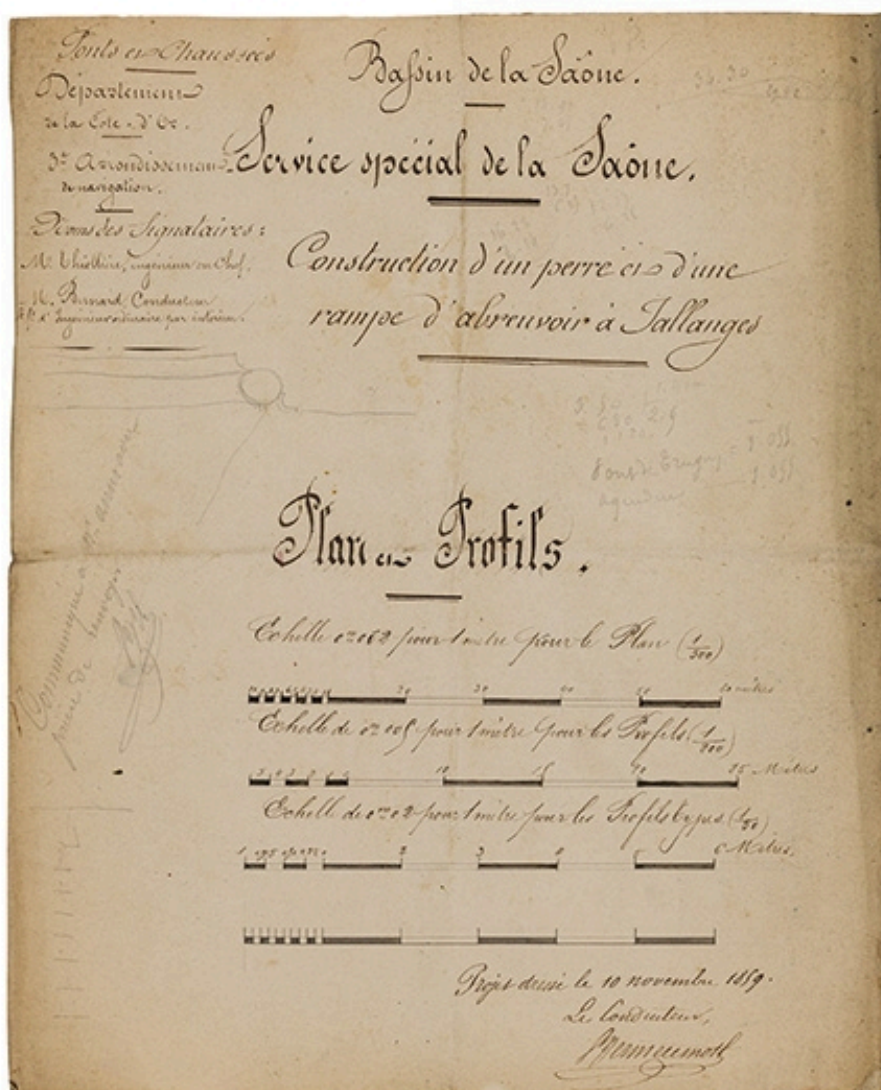 Ponts et Chaussées
Département
de la Côte-d'Or.
3e Arrondissement
de navigation.
Noms des Signataires :
Mr Thiollière, ingénieur en Chef.
M. Bernard, Conducteur
d'Ingénieur ordinaire par intérim.
Bassin de la Saône.
Service spécial de la Saône.
Construction d'un perré et d'une
rampe d'abreuvoir à Jallanges
Communiqué à Mr
prière de renvoyer
aqueduc
Plan et Profils.
Echelle 0m002 pour 1 mètre pour le Plan (1/500)
20 30 40 50 60 mètres
Echelle de 0m005 pour 1 mètre pour les Profils (1/200)
10 15 20 25 Mètres
Echelle de 0m02 pour 1 mètre pour les Profils types (1/50)
6 Mètres.
Projet dressé le 10 novembre 1859.
Le Conducteur,